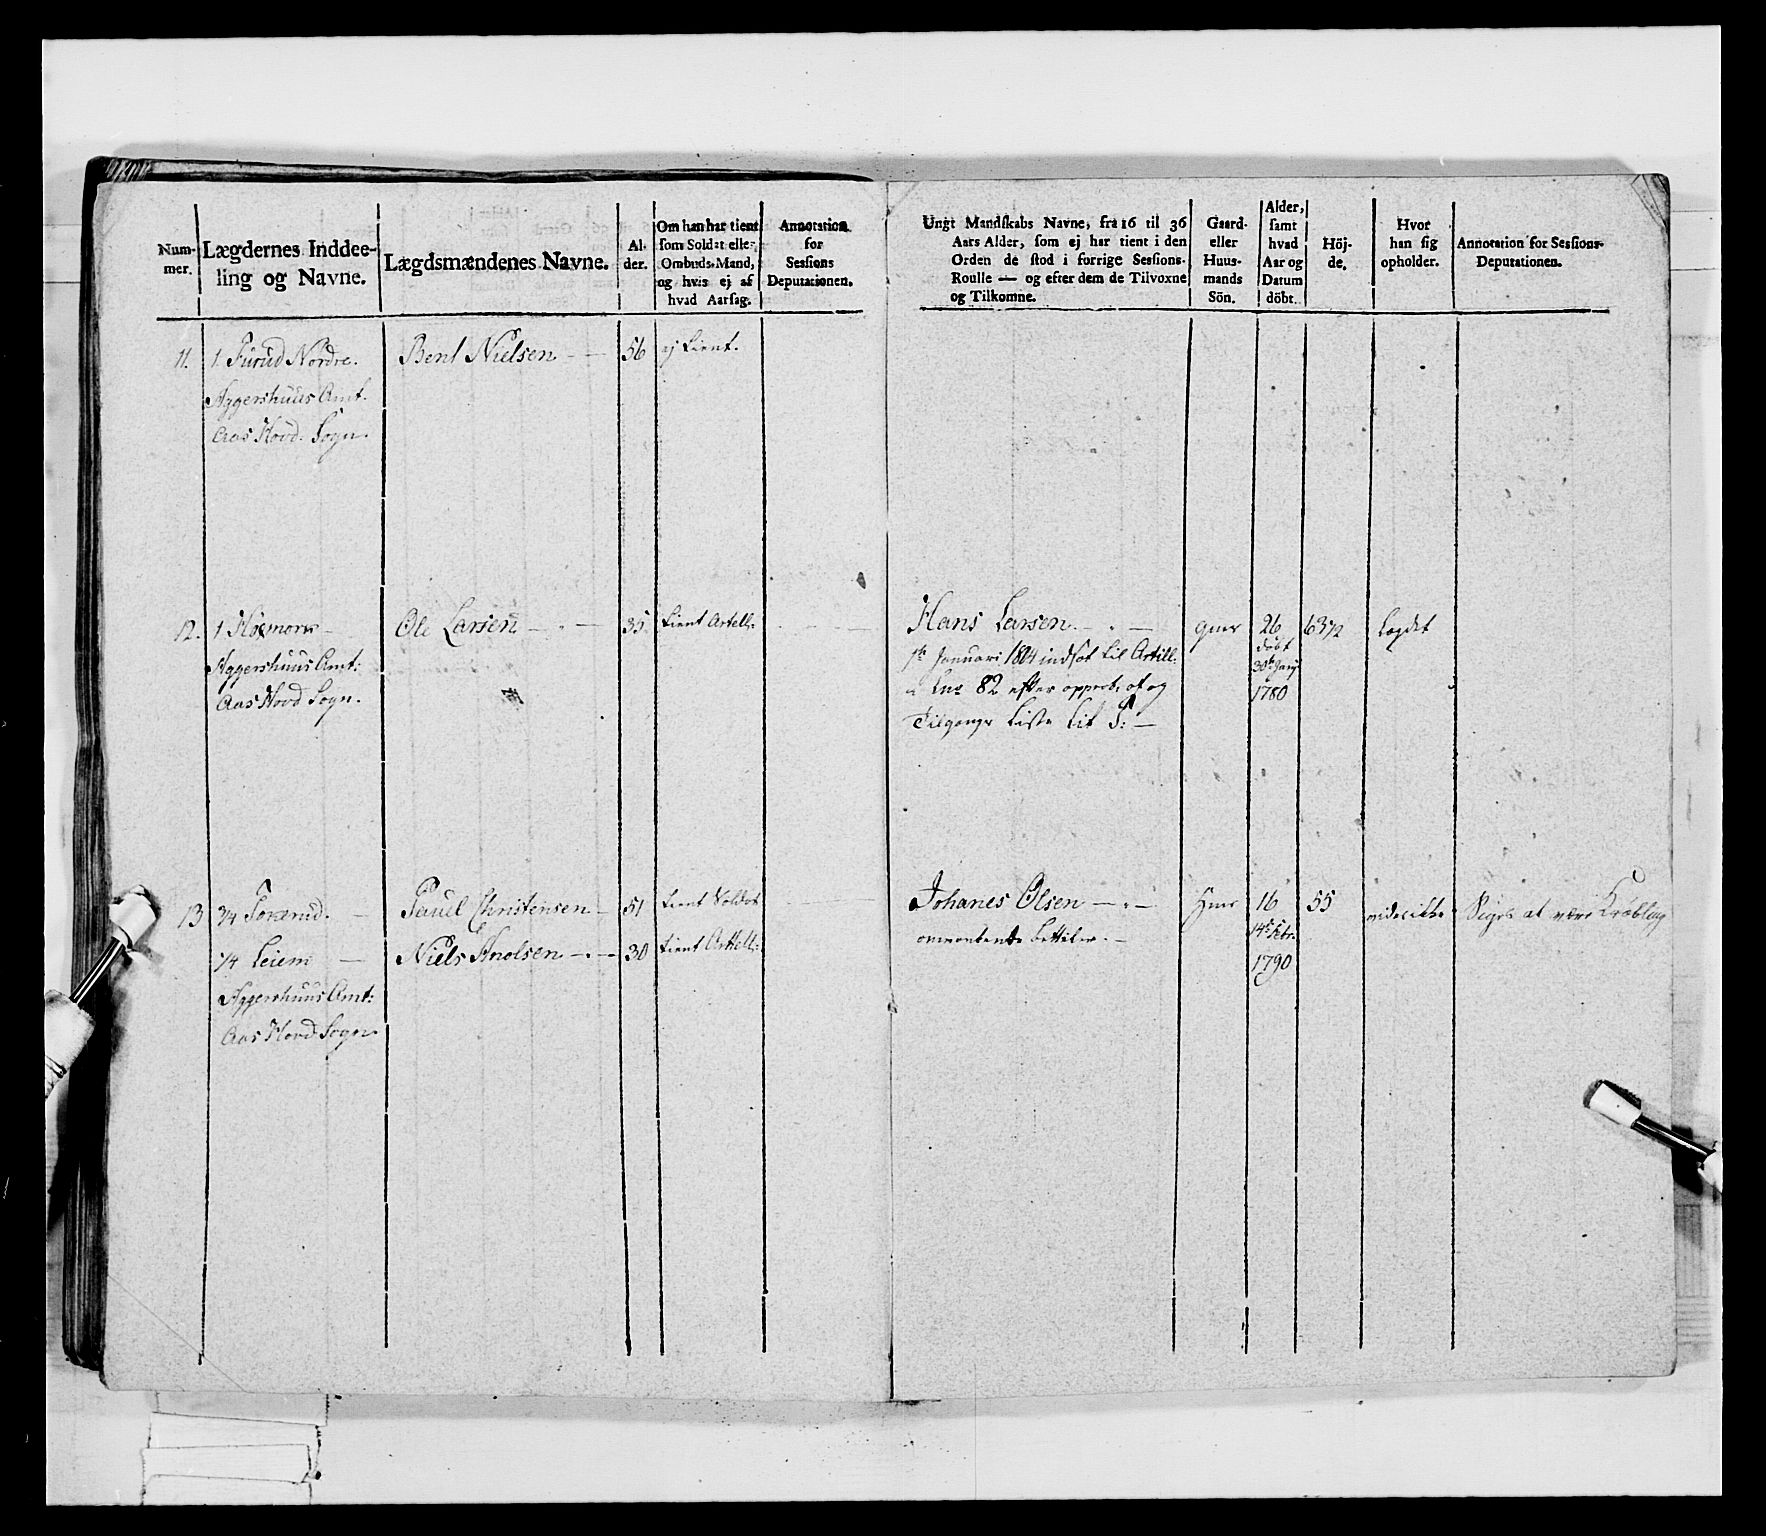 Num-
mer.
Lægdernes Inddee-
ling og Navne.
Lægdsmændenes Navne.
Al-
der.
Om han har tient
som Soldat eller
Ombuds-Mand,
og hvis ej af
hvad Aarsag.
Annotation
for
Sessions
Deputationen.
Ungt Mandskabs Navne, fra 16 til 36
Aars Alder, som ej har tient i den
Orden de stod i forrige Sessions-
Roulle — og efter dem de Tilvoxne
og Tilkomne.
Gaard-
eller
Huus-
mands
Sön.
Alder,
samt
hvad
Aar og
Datum
döbt.
Höj-
de.
Hvor
han sig
opholder.
Annotation for Sessions-
Deputationen.
11. 1 Furud Nordre. Bent Nielsen — 56 ej tient.
Aggershuus Amt.
Aas Hovd. Sogn.
12. 1 Ole Larsen — 35 tient Artell: Hans Larsen — gmr 26 63 1/2 Lægdet
Aggershuus Amt:
Aas Hovd Sogn.
1te Januari 1804 indsot til Artill.
82 efter approb: af og
Tilgangs Liste Lit S: —
döbt
30te Janry
1780
13 3/4 — Pauel Christensen — 51 tient Soldat Johanes Olsen — hmr 16 55 Siges at være Kröbling
1/4 — Niels Knolsen — 30 tient Artell:
Aggershuus Amt:
Aas Hovd Sogn
omvankende bettiler. —
14e Febr.
1790